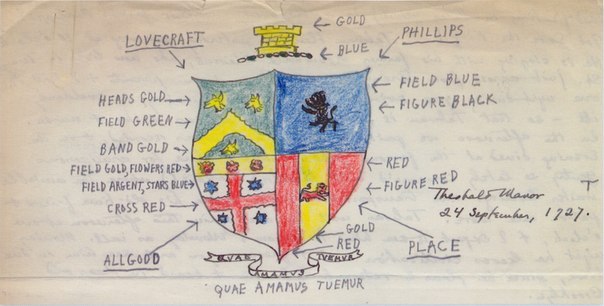 GOLD
LOVECRAFT
PHILLIPS
BLUE
FIELD BLUE
HEADS GOLD
FIGURE BLACK
FIELD GREEN
BAND GOLD
RED
FIELD GOLD, FLOWERS RED
FIELD ARGENT, STARS BLUE
FIGURE RED
Theobald Manor
24 September, 1727.
CROSS RED
GOLD
RED
ALLGOOD
PLACE
QUAE AMAMUS TUEMUR
QUAE AMAMUS TUEMUR